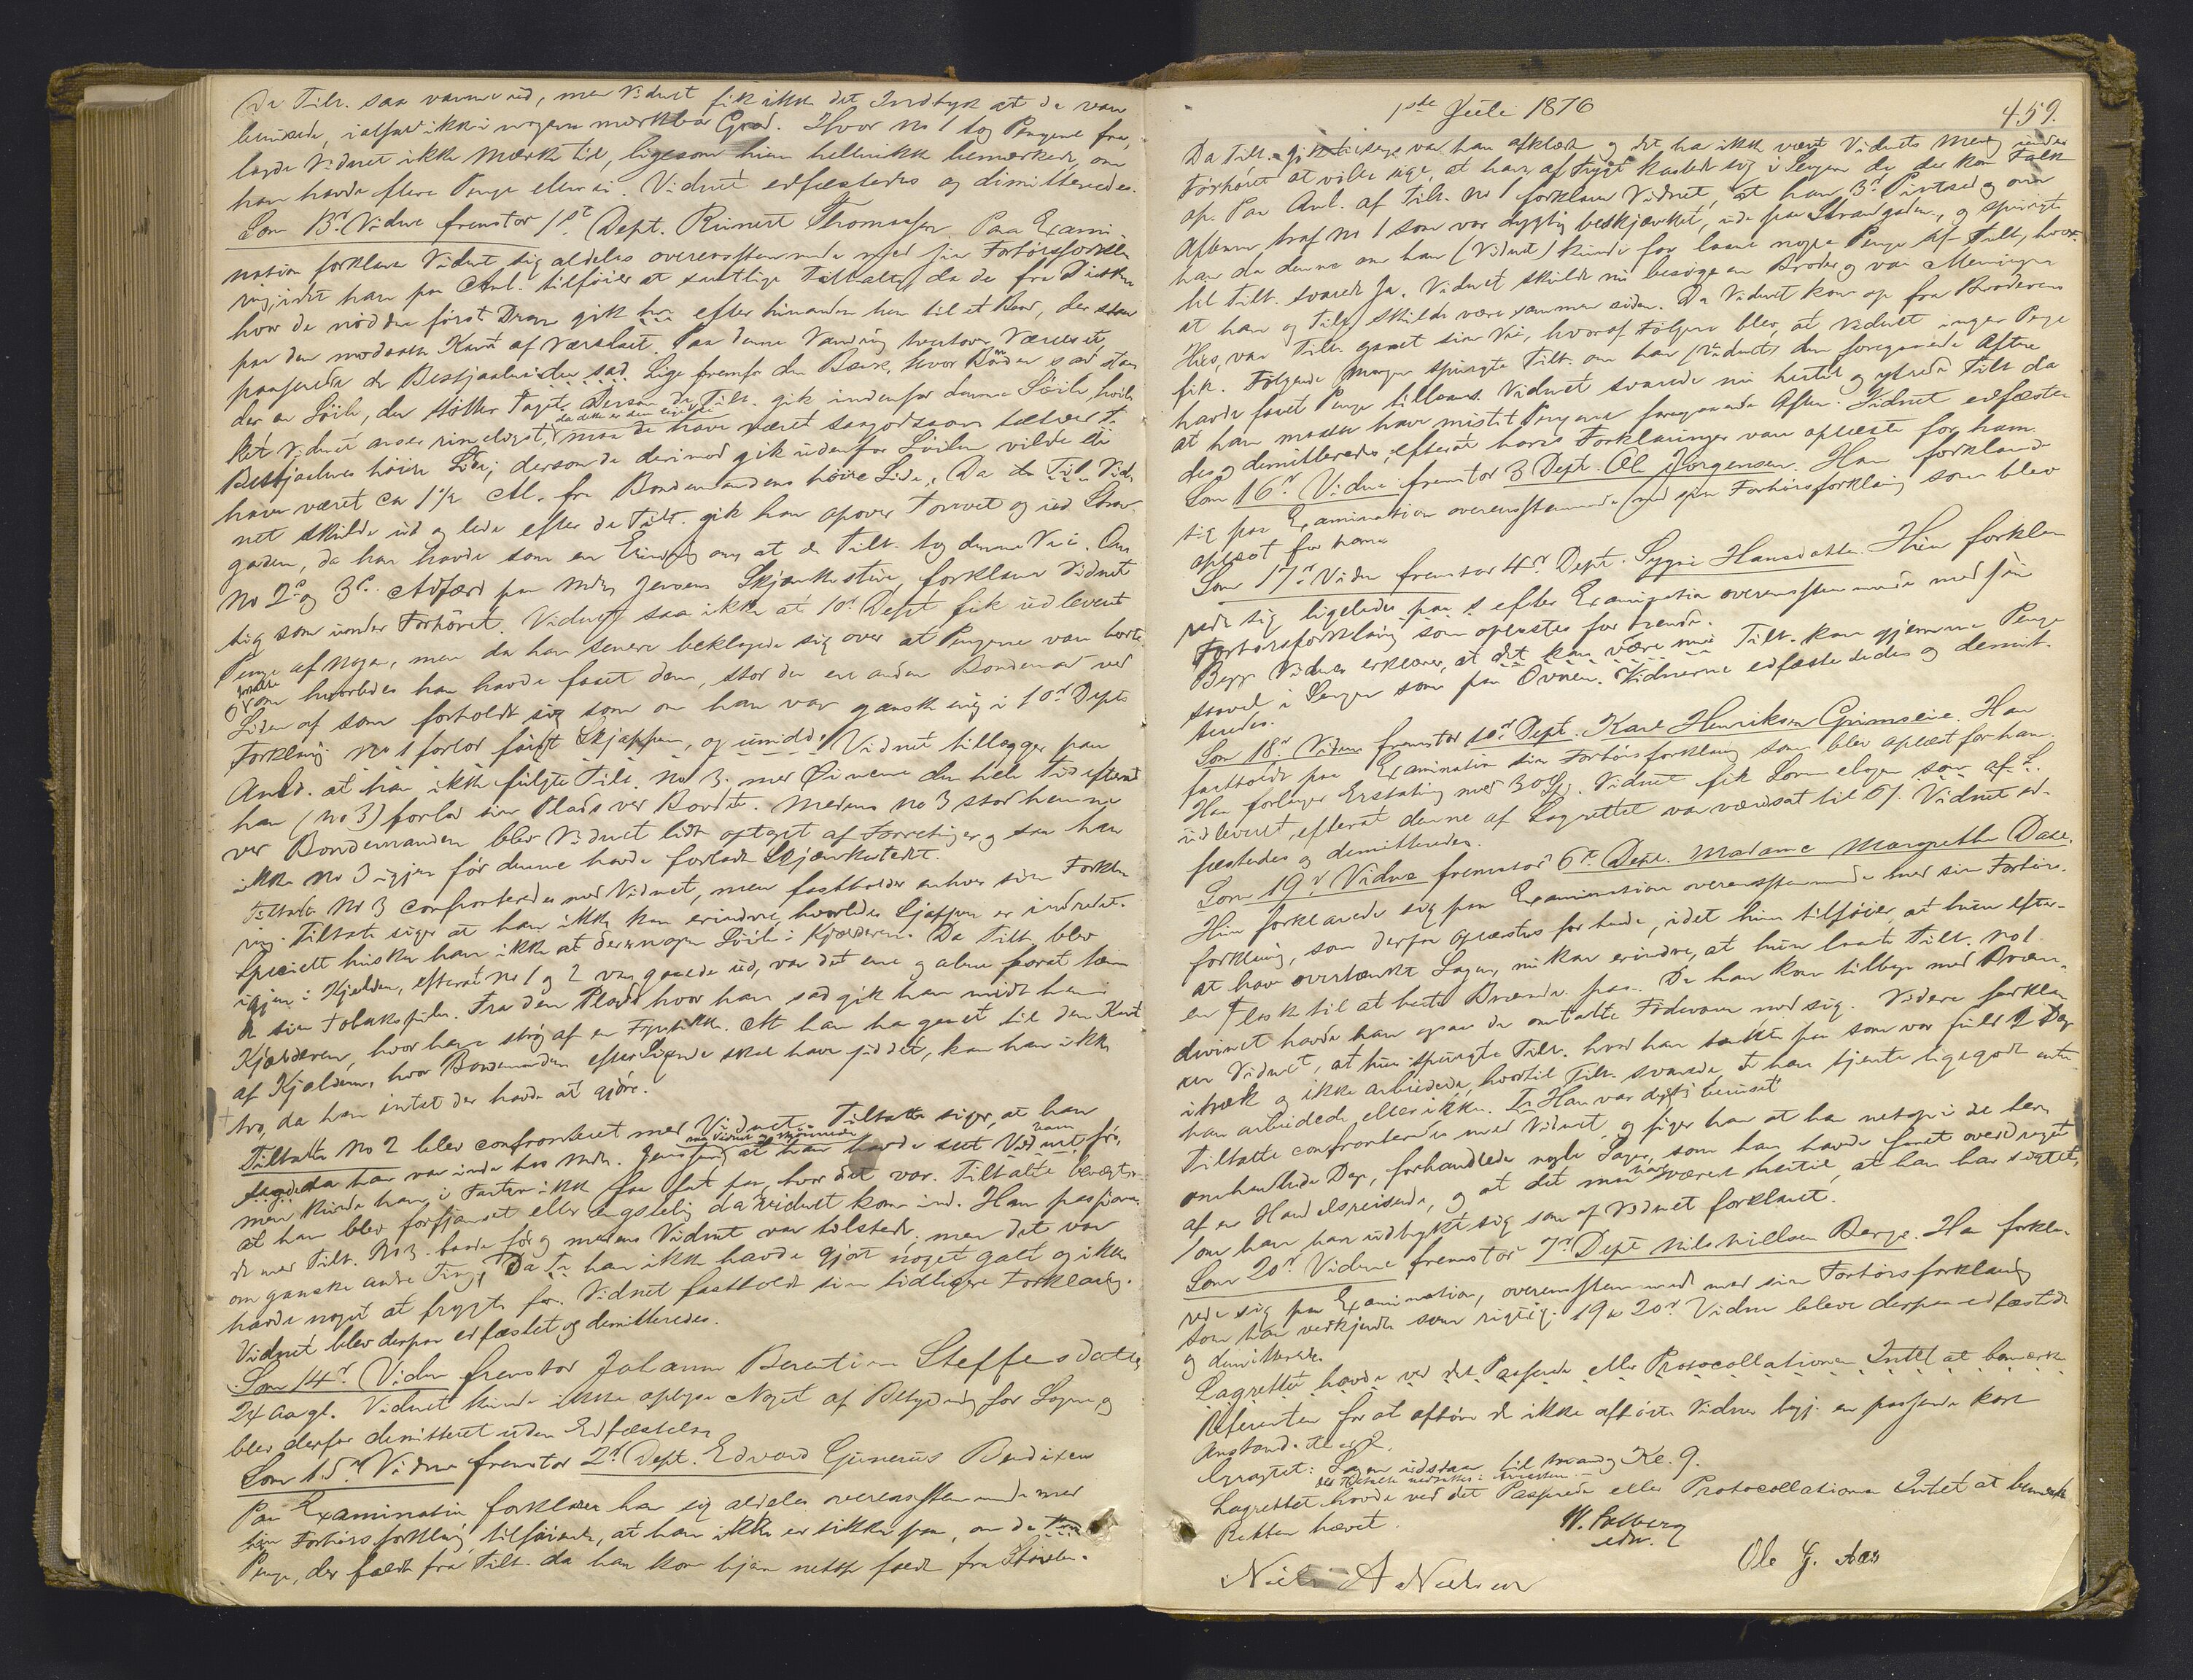 De Tilt. saa varme ud, men Vidnet fik ikke det Indtryk at de vare
berusede, ialfald ikke i nogen mærkbar Grad. Hvor No 1 tog Pengene fra,
lagde Vidnet ikke Mærke til, ligesom hun heller ikke bemærkede, om
han havde flere Penge eller ei. Vidnet edfæstedes og dimitteredes.
Som 13de Vidne fremstod 1ste Dept. Rinert Thomassen. Paa Exami-
nation forklarer Vidnet sig aldeles overensstemmende med sin Forhørsforkla-
ring, idet han paa Anl. tilføier at samtlige Tiltalte, da de fra Disken
hvor de nød den først Dram gik hen efter hinanden hen til et Bord, der stod
paa den modsatte Kant af Værelset. Paa denne Vandring tversover Værelset,
passerede de Bestjaalne der sad. Lige fremfor den Bænk, hvor Bonden sad staar
der en Søile, der støtter Taget. Dersom de Tilt. gik indenfor denne Søile, hvil-
ket Vidnet anser rimeligst, maa de have været saagodtsom tæt ved
Bestjaalnes høire Side; dersom de derimod gik udenfor Søilen vilde de
have været ca 1½ Al. fra Bondemandens høire Side. Da Vid-
net skulde ud og lede efter de Tilt. gik han opover Torvet og ud Strand-
gaden, da han havde som en Erindring om at de Tilt. tog denne Vei. Om
No 2s og 3s Adfærd paa Mdm Jensens Skjænkested, forklarer Vidnet
sig som under Forhøret. Vidnet saa ikke at 10de Dept fik udleveret
Penge af Nogen, men da han senere beklagede sig over at Pengene vare borte
og om hvorledes han havde faaet dem, stod den ene anden Bondemand ved
Siden af som forholdt sig som om han var ganske enig i 10de Depts
Forklaring. No 1 forlod først Skjappen, og Vidnet tillægger paa
Anled. at han ikke fulgte Tilt. No 3. med Øinene den hele Tid efterat
han (No 3) forlod sin Plads ved Bordet. Medens No 3 stod henne
ved Bondemanden blev Vidnet lidt optaget af Forretninger og saa han
ikke No 3 igjen før denne havde forladt Skjænkestedet.
Tiltalte No 3 confronteredes med Vidnet, men fastholder enhver sin Forkla-
ring. Tiltalte siger at han ikke kan erindre, hvorledes Sjappen er indredet.
Specielt husker han ikke at der er nogen Søile i Kjælderen. Da Tilt. blev
igjen i Kjælderen, efterat No 1 og 2 var gaaede ud, var det ene og alene forat tæn-
de sin Tobakspibe. Fra den Plads hvor han sad gik han midt hen i
Kjælderen, hvor han strøg af en Fyrstikke. At han har gaaet til den Kant
af Kjælderen, hvor Bondemanden efter Sigende skal have siddet, kan han ikke
tro, da han intet der havde at gjøre.
Tiltalte No 2 blev confronteret med Vidnet. Tiltalte siger, at han
da han var inde hos Mdm. Jensen at han havde seet Vidnet før,
men kunde han i Farten ikke faa fat paa, hvor det var. Tiltalte benægter
at han blev forfjamset eller ængstelig da Vidnet kom ind. Han passiare-
de med Tilt. No 3. baade før og medens Vidnet var tilstede, men det var
om ganske andre Ting, Da han ikke havde gjort noget galt og ikke
havde noget at frygte for. Vidnet fastholdt sin tidligere Forklaring.
Vidnet blev derpaa edfæstet og demitteredes.
Som 14de Vidne fremstod Johanne Berentine Steffensdatter
24 Aar gl. Vidnet kunde ikke oplyse Noget af Betydning for Sagen og
blev derfor demitteret uden Edfæstelse.
Som 15de Vidne fremstod 2de Dept. Edvard Gunerius Bendixen
Paa Examination forklarer han sig aldeles overensstemmende med
sin Forhørsforklaring, tilføiende, at han ikke er sikker paa, om de
Penge, der faldt fra Tilt. da han kom hjem netop faldt fra Støvlen.
1ste Juli 1876
459.
Da Tilt. gik tilsengs var han afklædt og det har ikke været Vidnets Mening under
Forhøret at ville sige, at han af Frygt kastede sig i Sengen da der kom Folk
op. Paa Anl. af Tilt. No 1 forklarer Vidnet, at han 3de Pintsedag om
Aftenen traf No 1 som var dygtig beskjænket, ude paa Strandgaden, og spurgte
han da denne om han (Vidnet) kunde faa laane nogle Penge af Tilt, hvor-
til Tilt. svarede Ja. Vidnet skulde nu besøge en Broder og var Meningen
at han og Tilt. skulde være sammen siden. Da Vidnet kom op fra Broderens
Hus, var Tilt. gaaet sin Vei, hvoraf Følgen blev, at Vidnet ingen Penge
fik. Følgende Morgen spurgte Tilt. om han (Vidnet) den foregaaende Aften
havde faaet Penge tillaans. Vidnet svarede nei hertil og ytrede Tilt da
at han maatte have mistet Pengene foregaaende Aften. Vidnet edfæste-
des og demitteredes, efterat hans Forklaringer vare oplæste for ham.
Som 16de Vidne fremstod 3 Dept. Ole Jørgensen. Han forklarede
sig paa Examination overensstemmende med sin Forhørsforklaring som blev
oplæst for ham.
Som 17de Vidne fremstod 4de Dept. Sygni Hansdatter. Hun forkla-
rede sig ligeledes paa efter Examination overensstemmende med sin
Forhørsforklaring som oplæstes for hende.
Begge Vidner erklærer, at det kan være Tilt. kan gjemme Penge
saavel i Sengen som paa Ovnen. Vidnerne edfæstededes og demit-
teredes.
Som 18de Vidne fremstod 10de Dept. Karl Henriksen Grimseie. Han
fastholdt paa Examination sin Forhørsforklaring som blev oplæst for ham.
Han forlanger Erstatning med 30 Spd. Vidnet fik Lommebogen
udleveret, efterat denne af Lagrettet var værdsat til 6 /. Vidnet ed-
fæstedes og demitteredes.
Som 19de Vidne fremstod 6te Dept. Madame Margrethe Dase.
Hun forklarede sig paa Examination overensstemmende med sin Forhørs-
forklaring, som derfor oplæstes for hende, idet hun tilføier, at hun efter-
at have overtænkt Sagen, nu kan erindre, at hun laante Tilt. No 1
en Flaske til at hente Brænde- paa. Da han kom tilbage med Bræn-
devinet havde han ogsaa de omtalte Fødevarer med sig. Videre forkla-
rer Vidnet, at hun spurgte Tilt. hvad han tænkte paa som var fuld 2 Dage
itræk og ikke arbeidede, hvortil Tilt. svarede, at han tjente ligegodt enten
han arbeidede eller ikke. Han var dygtig beruset
Tiltalte confronteredes med Vidnet, og siger han at han netop i de her
omhandlede Dage, forhandlede nogle Sager, som han havde faaet overdraget
af en Handelsreisende, og at det maa have været hertil, at han har sigtet,
om han har udtrykt sig som af Vidnet forklaret.
Som 20de Vidne fremstod 7de Dept Nils Nillsen Berge. Han forkla-
rede sig paa Examination, overensstemmende med sin Forhørsforklaring
som han vedkjendte som rigtig. 19 & 20de Vidne bleve derpaa edfæstede
og demitterede.
Lagrettet havde ved det Passerede eller Protocollationen Intet at bemærke
Referenten for at afhøre de ikke afhørte Vidner begj. en passende kort
Anstand.
Eragtet: Sagen udstaar til Mandag Kl. 9.
Lagrettet havde ved det Passerede eller Protocollationen Intet at bemærke
Retten hævet.
edsv.
Niels A Nielsen
Ole G. Aas